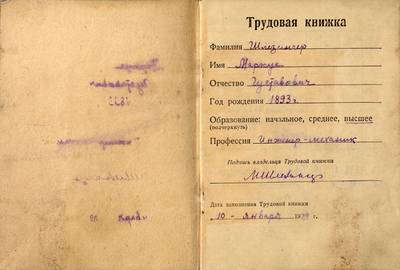 Трудовая книжка
Фамилия Шлезингер
Имя Маркус
Отчество Густавович
Год рождения 1893 г.
Образование: начальное, среднее, высшее
(подчеркнуть)
Профессия Инженер-механик
Подпись владельца Трудовой книжки
Дата заполнения Трудовой книжки
10 - января 1939 г.